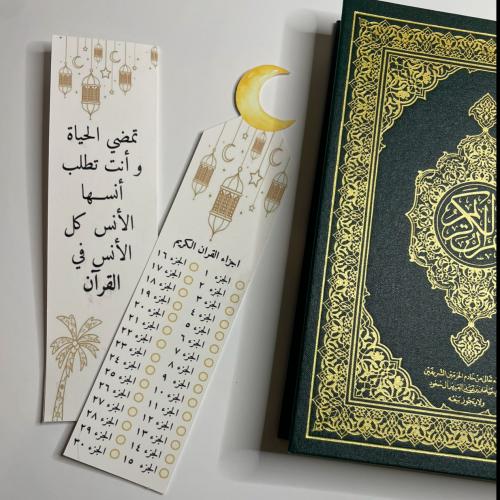 تمضي الحياة
و أنت تطلب
أنسها
الأنس كل
الأنس في
القرآن
اجزاء القران الكريم
الجزء ١
الجزء ٢
الجزء ٣
الجزء ٤
الجزء ٥
الجزء ٦
الجزء ٧
الجزء ٨
الجزء ٩
الجزء ١٠
الجزء ١١
الجزء ١٢
الجزء ١٣
الجزء ١٤
الجزء ١٥
الجزء ١٦
الجزء ١٧
الجزء ١٨
الجزء ١٩
الجزء ٢٠
الجزء ٢١
الجزء ٢٢
الجزء ٢٣
الجزء ٢٤
الجزء ٢٥
الجزء ٢٦
الجزء ٢٧
الجزء ٢٨
الجزء ٢٩
الجزء ٣٠
القرآن الكريم
من خادم الحرمين الشريفين
آل سعود
ولا يجوز بيعه